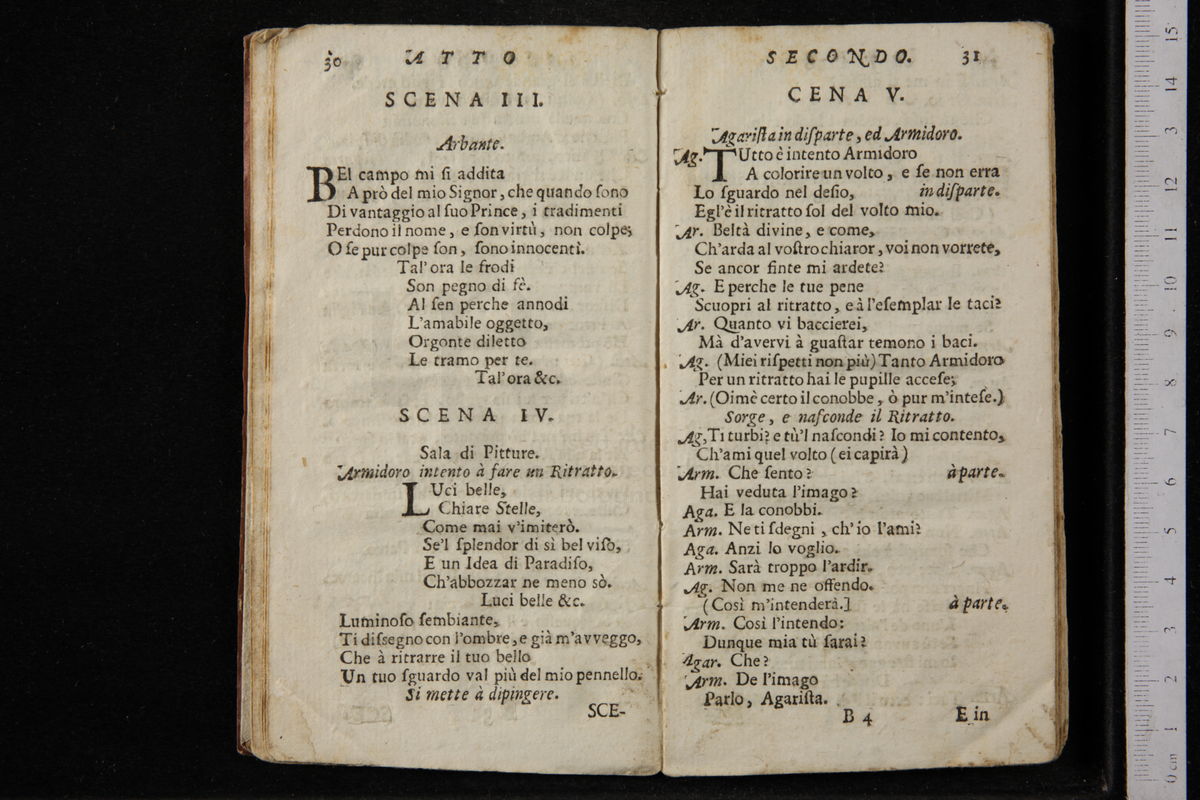 30 ATTO
SCENA III.
Arbante.
BEl campo mi ſi addita
A prò del mio Signor, che quando ſono
Di vantaggio al ſuo Prince, i tradimenti
Perdono il nome, e ſon virtù, non colpe;
O ſe pur colpe ſon, ſono innocenti.
Tal'ora le frodi
Son pegno di fè.
Al ſen perche annodi
L'amabile oggetto,
Orgonte diletto
Le tramo per te.
Tal'ora &c.
SCENA IV.
Sala di Pitture.
Armidoro intento à fare un Ritratto.
LUci belle,
Chiare Stelle,
Come mai v'imiterò.
Se'l ſplendor di sì bel viſo,
E un Idea di Paradiſo,
Ch'abbozzar ne meno sò.
Luci belle &c.
Luminoſo ſembiante,
Ti diſſegno con l'ombre, e già m'avveggo,
Che à ritrarre il tuo bello
Un tuo ſguardo val più del mio pennello.
Si mette à dipingere.
SCE-
SECONDO. 31
CENA V.
Agariſta in diſparte, ed Armidoro.
Ag. TUtto è intento Armidoro
A colorire un volto, e ſe non erra
Lo ſguardo nel deſio, in diſparte.
Egl'è il ritratto ſol del volto mio.
Ar. Beltà divine, e come,
Ch'arda al voſtro chiaror, voi non vorrete,
Se ancor finte mi ardete?
Ag. E perche le tue pene
Scuopri al ritratto, e à l'eſemplar le taci?
Ar. Quanto vi baccierei,
Mà d'avervi à guaſtar temono i baci.
Ag. (Miei riſpetti non più) Tanto Armidoro
Per un ritratto hai le pupille acceſe;
Ar. (Oimè certo il conobbe, ò pur m'inteſe.)
Sorge, e naſconde il Ritratto.
Ag, Ti turbi? e tù'l naſcondi? Io mi contento,
Ch'ami quel volto (ei capirà)
Arm. Che ſento? à parte.
Hai veduta l'imago?
Aga. E la conobbi.
Arm. Ne ti ſdegni, ch'io l'ami?
Aga. Anzi lo voglio.
Arm. Sarà troppo l'ardir.
Ag. Non me ne offendo.
(Così m'intenderà.] à parte.
Arm. Così l'intendo:
Dunque mia tù ſarai?
Agar. Che?
Arm. De l'imago
Parlo, Agariſta.
B 4 E in
15
14
3
12
11
10
9
8
7
6
5
4
3
2
1
0 cm